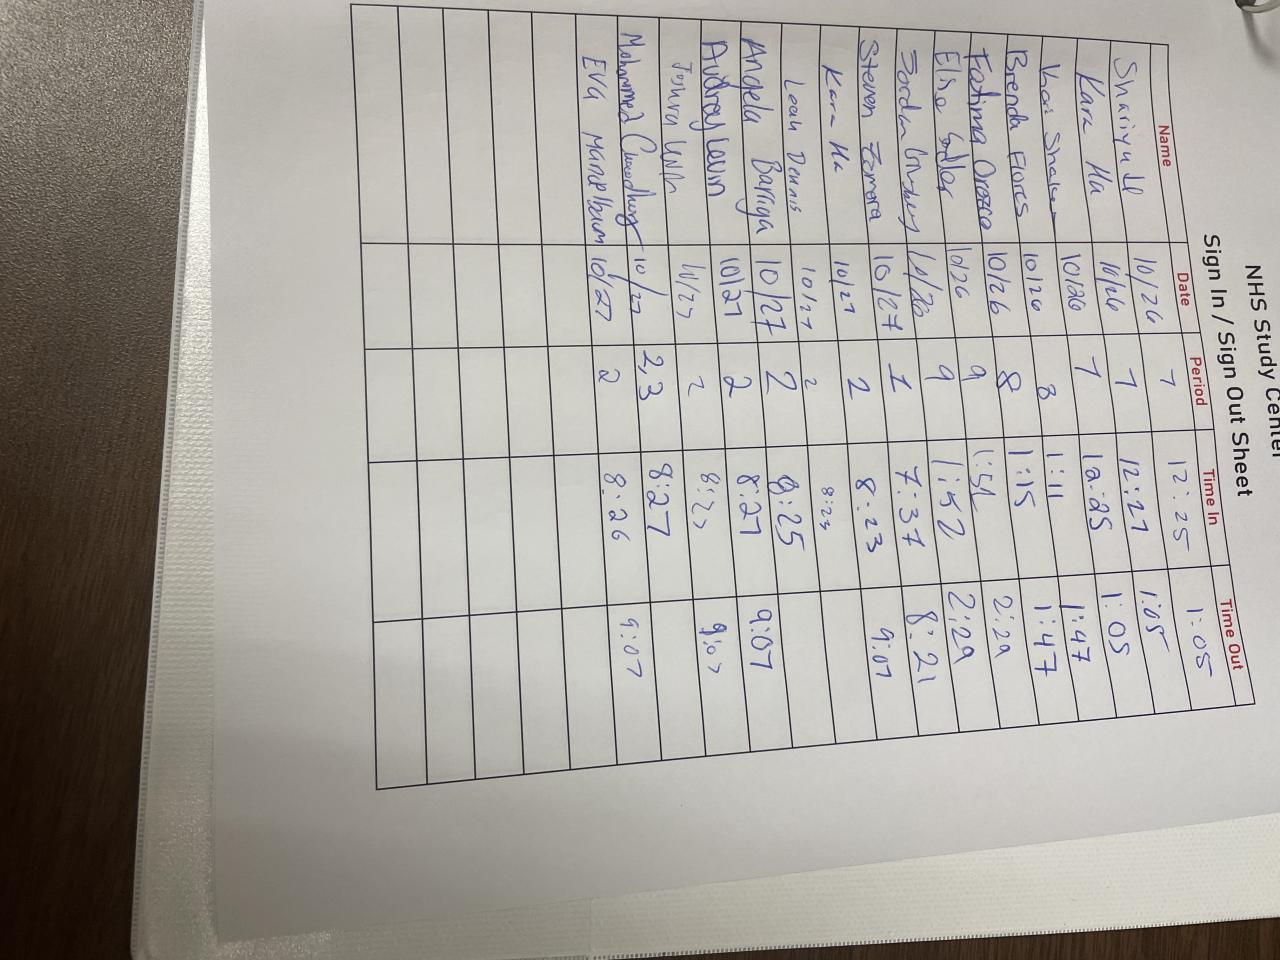 NHS Study Center
Sign In / Sign Out Sheet
Name Date Period Time In Time Out
10/26 7 12:25 1:05
Kara Ha 10/26 7 12:27 1:05
10/26 7 12:25 1:05
Brenda Flores 10/26 8 1:11 1:47
Fatima Orozco 10/26 8 1:15 1:47
Elise 10/26 9 2:29
Jordan 10/26 9 1:52 2:29
Steven Zamora 10/27 1 7:37 8:21
Kara Ha 10/27 2 8:23 9:07
Leah Dennis 10/27 2 8:23
Angela Barriga 10/27 2 8:25
Audrey Levin 10/27 2 8:27 9:07
Joshua 10/27 2 9:07
Mohammed Chowdhury 10/27 2,3 8:27
Eva Mandelbaum 10/27 2 8:26 9:07